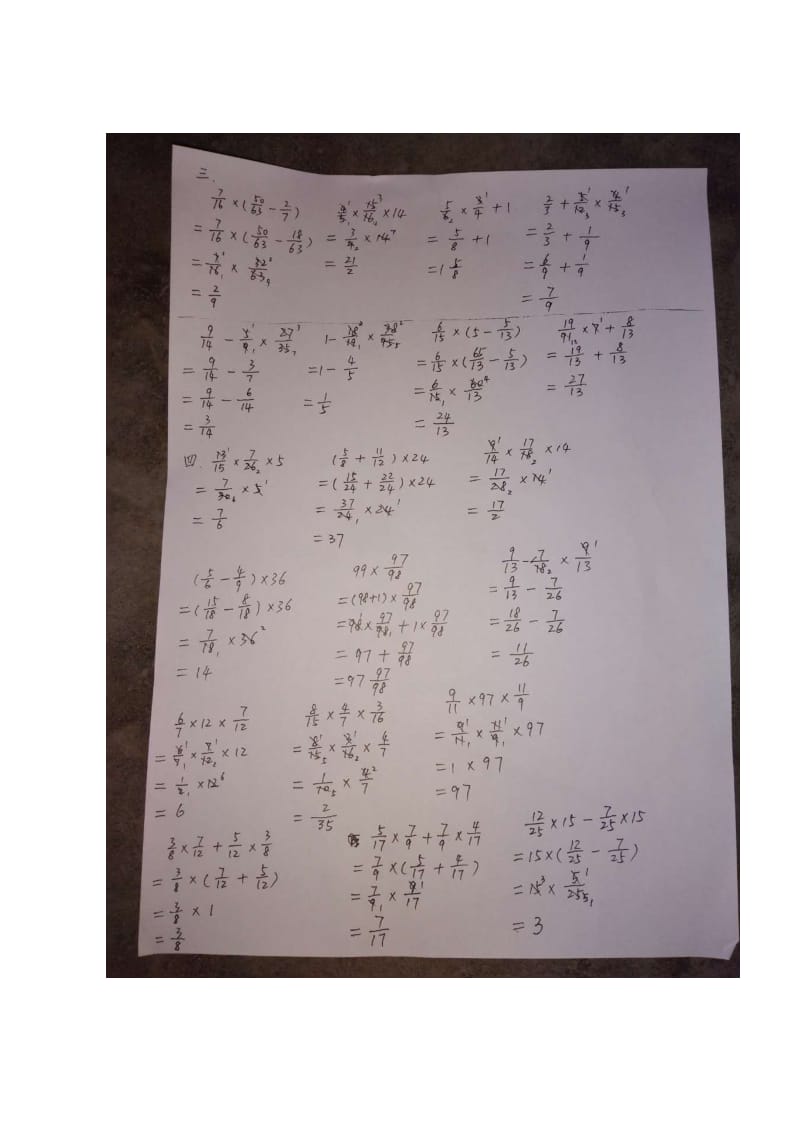 三.
7/16 × (50/63 − 2/7)
= 7/16 × (50/63 − 18/63)
= 7/16 × 32/63
= 2/9
4/5 × 15/16 × 14
= 3/4 × 14
= 21/2
5/6 × 3/4 + 1
= 5/8 + 1
= 1 5/8
2/3 + 5/12 × 4/15
= 2/3 + 1/9
= 6/9 + 1/9
= 7/9
9/14 − 5/9 × 27/35
= 9/14 − 3/7
= 9/14 − 6/14
= 3/14
= 1 − 4/5
= 1/5
6/15 × (5 − 5/13)
= 6/15 × (65/13 − 5/13)
= 6/15 × 60/13
= 24/13
19/91 × 7 + 8/13
= 19/13 + 8/13
= 27/13
四. 13/15 × 7/26 × 5
= 7/30 × 5
= 7/6
(5/8 + 11/12) × 24
= (15/24 + 22/24) × 24
= 37/24 × 24
= 37
9/14 × 17/18 × 14
= 17/28 × 14
= 17/2
(5/6 − 4/9) × 36
= (15/18 − 8/18) × 36
= 7/18 × 36
= 14
99 × 97/98
= (98+1) × 97/98
= 98 × 97/98 + 1 × 97/98
= 97 + 97/98
= 97 97/98
9/13 − 7/18 × 9/13
= 9/13 − 7/26
= 18/26 − 7/26
= 11/26
6/7 × 12 × 7/12
= 6/7 × 7/12 × 12
= 1/2 × 12
= 6
8/15 × 4/7 × 3/16
= 8/15 × 3/16 × 4/7
= 1/10 × 4/7
= 2/35
9/11 × 97 × 11/9
= 9/11 × 11/9 × 97
= 1 × 97
= 97
3/8 × 7/12 + 5/12 × 3/8
= 3/8 × (7/12 + 5/12)
= 3/8 × 1
= 3/8
5/17 × 7/9 + 7/9 × 4/17
= 7/9 × (5/17 + 4/17)
= 7/9 × 9/17
= 7/17
12/25 × 15 − 7/25 × 15
= 15 × (12/25 − 7/25)
= 15 × 5/25
= 3